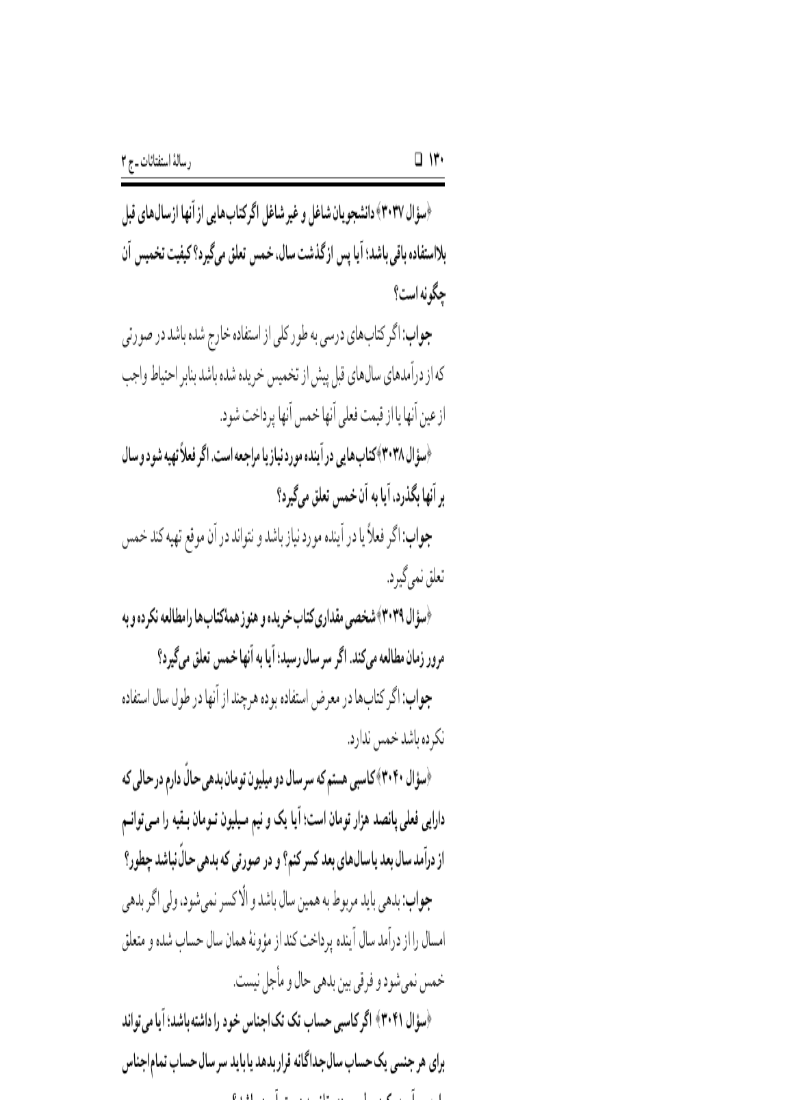 ۱۳۰ ❏ رسالهٔ استفتائات ـ ج ۳
﴿سؤال ۳۰۳۷﴾ دانشجویان شاغل و غیر شاغل اگر کتاب‌هایی از آنها از سال‌های قبل
بلااستفاده باقی باشد؛ آیا پس از گذشت سال، خمس تعلق می‌گیرد؟ کیفیت تخمیس آن
چگونه است؟
جواب: اگر کتاب‌های درسی به طور کلی از استفاده خارج شده باشد در صورتی
که از درآمدهای سال‌های قبل پیش از تخمیس خریده شده باشد بنابر احتیاط واجب
از عین آنها یا از قیمت فعلی آنها خمس آنها پرداخت شود.
﴿سؤال ۳۰۳۸﴾ کتاب‌هایی در آینده مورد نیاز یا مراجعه است. اگر فعلاً تهیه شود و سال
بر آنها بگذرد، آیا به آن خمس تعلق می‌گیرد؟
جواب: اگر فعلاً یا در آینده مورد نیاز باشد و نتواند در آن موقع تهیه کند خمس
تعلق نمی‌گیرد.
﴿سؤال ۳۰۳۹﴾ شخصی مقداری کتاب خریده و هنوز همهٔ کتاب‌ها را مطالعه نکرده و به
مرور زمان مطالعه می‌کند. اگر سر سال رسید؛ آیا به آنها خمس تعلق می‌گیرد؟
جواب: اگر کتاب‌ها در معرض استفاده بوده هرچند از آنها در طول سال استفاده
نکرده باشد خمس ندارد.
﴿سؤال ۳۰۴۰﴾ کاسبی هستم که سر سال دو میلیون تومان بدهی حالّ دارم در حالی که
دارایی فعلی پانصد هزار تومان است؛ آیا یک و نیم میلیون تومان بقیه را می‌توانم
از درآمد سال بعد یا سال‌های بعد کسر کنم؟ و در صورتی که بدهی حالّ نباشد چطور؟
جواب: بدهی باید مربوط به همین سال باشد و الّا کسر نمی‌شود، ولی اگر بدهی
امسال را از درآمد سال آینده پرداخت کند از مؤونهٔ همان سال حساب شده و متعلق
خمس نمی‌شود و فرقی بین بدهی حال و مأجل نیست.
﴿سؤال ۳۰۴۱﴾ اگر کاسبی حساب تک تک اجناس خود را داشته باشد؛ آیا می‌تواند
برای هر جنسی یک حساب سال جداگانه قرار بدهد یا باید سر سال حساب تمام اجناس